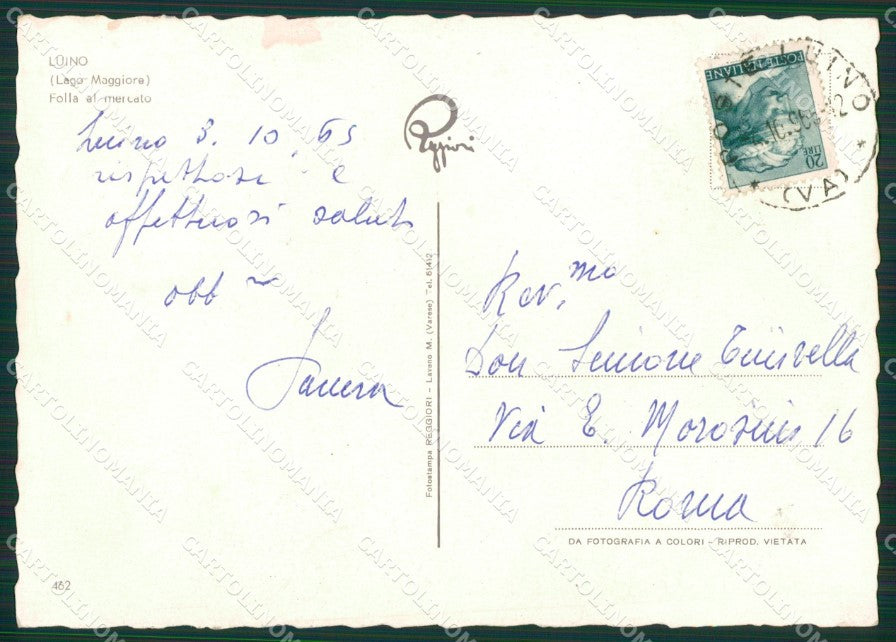 LUINO
(Lago Maggiore)
Folla al mercato
Luino 3. 10. 65
rispettosi e
affettuosi saluti
obb
462
Reggiori
Fotostampa REGGIORI - Laveno M. (Varese) Tel. 51412
POSTE ITALIANE
20 LIRE
POSTE LUINO
(VA)
Rev.mo
Don Simone
Via E. Morosini 16
Roma
DA FOTOGRAFIA A COLORI - RIPROD. VIETATA
CARTOLINOMANIA